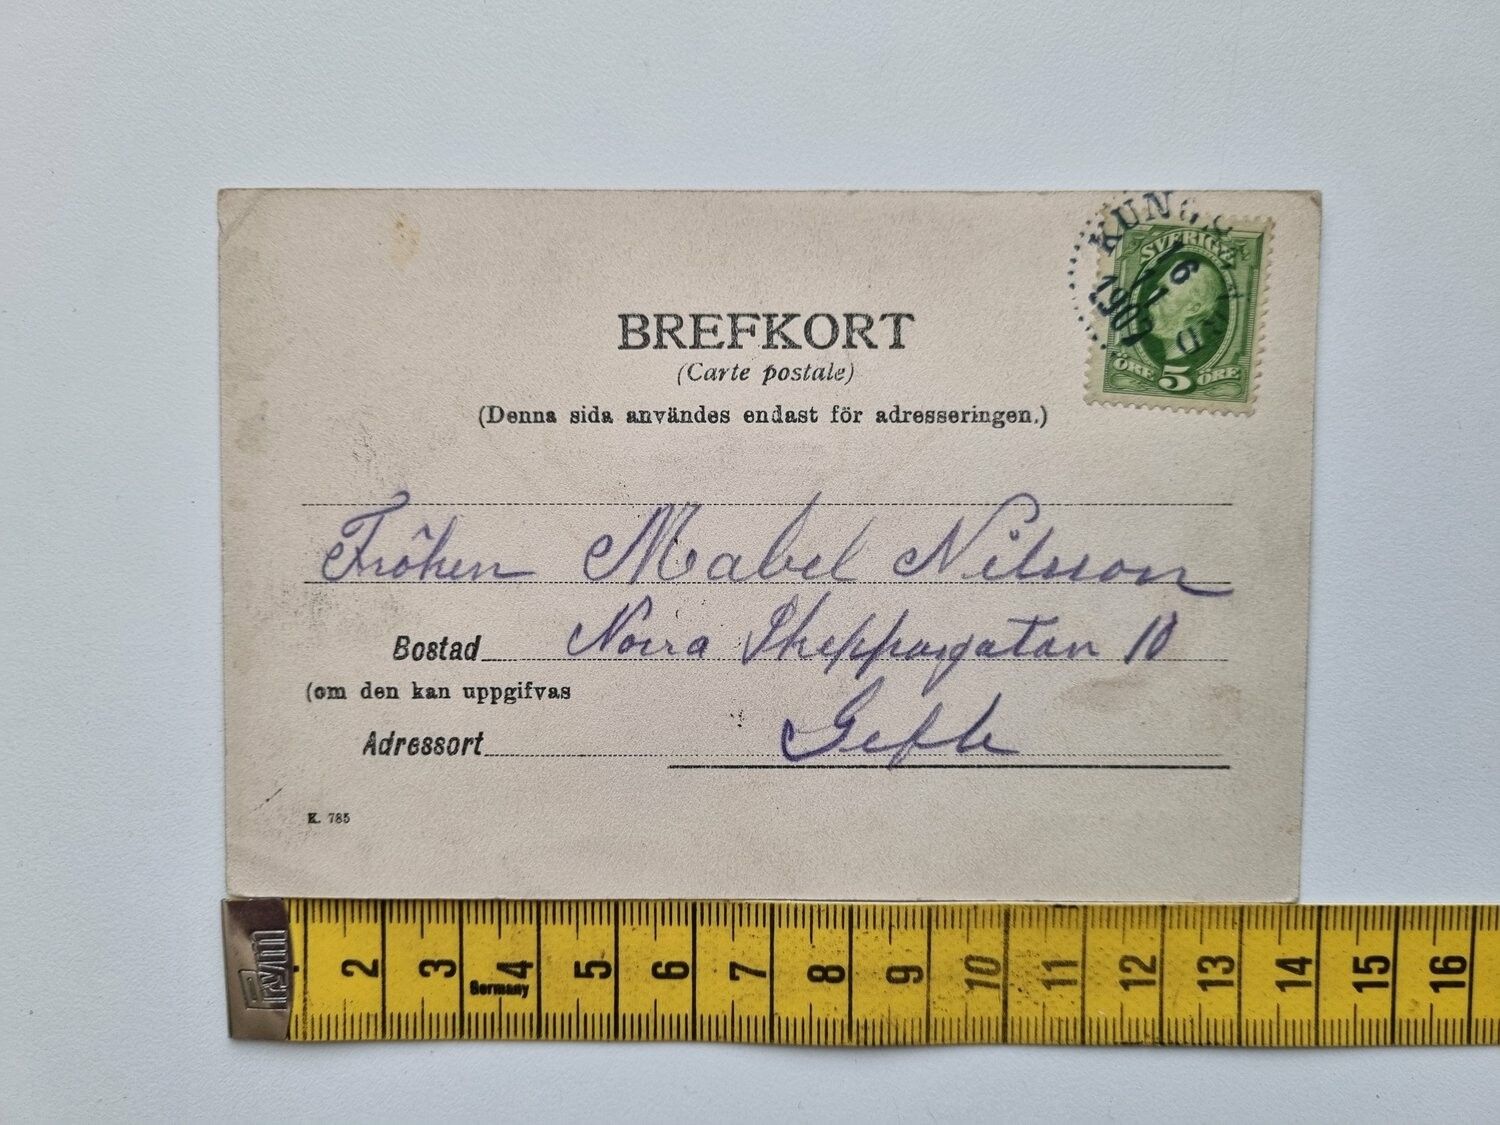 KUNGSGÅRD
16 11 1903
SVERIGE
ÖRE 5 ÖRE
BREFKORT
(Carte postale)
(Denna sida användes endast för adresseringen.)
Fröken Mabel Nilsson
Bostad Norra Skeppargatan 10
(om den kan uppgifvas
Adressort Gefle
K. 785
Prym
2 3 4 5 6 7 8 9 10 11 12 13 14 15 16
Germany